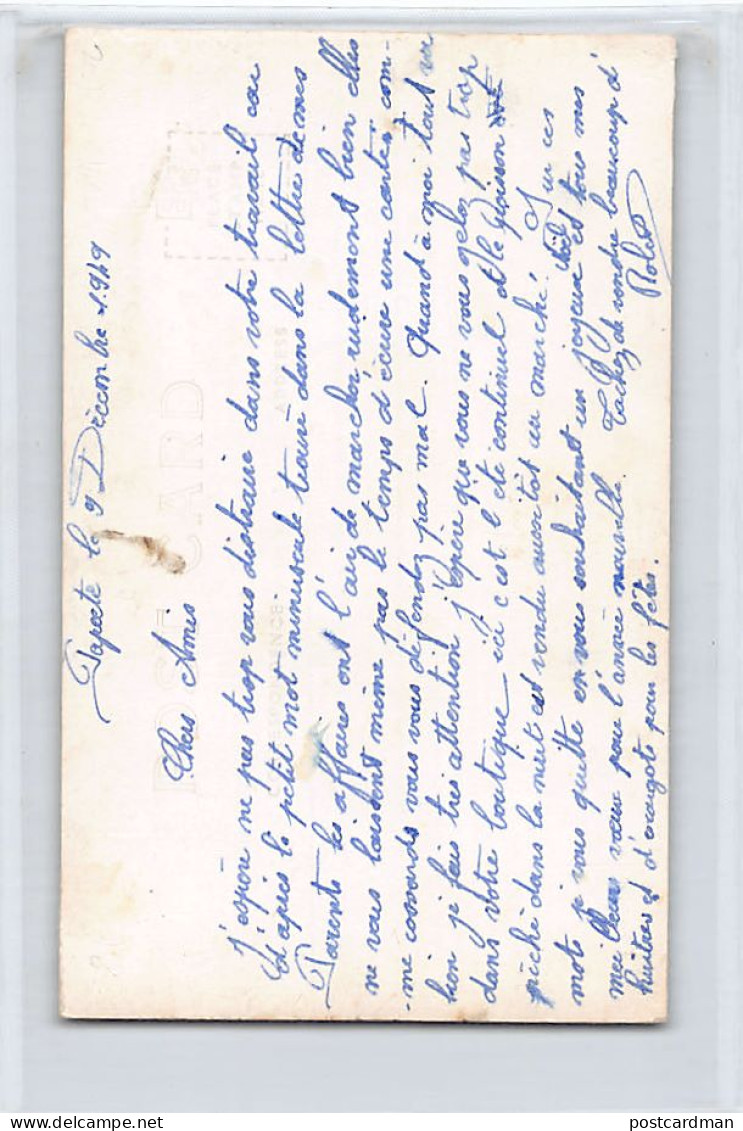 Papeete le 9 Décembre 1949
Chers Amis
J'espère ne pas trop vous distraire dans votre travail car
d'après le petit mot minuscule trouvé dans la lettre de mes
Parents les affaires ont l'air de marcher rudement bien elles
ne vous laissent même pas le temps d'écrire une carte, com-
-me commands vous vous défendez pas mal. Quand à moi tout va
bien je fais très attention j'espère que vous ne vous gelez pas trop
dans votre boutique ici c'est l'été continuel et le poisson
pêché dans la nuit est vendu aussitôt au marché! Sur ces
mots je vous quitte en vous souhaitant un joyeux Noël et tous mes
meilleurs vœux pour l'année nouvelle. Tachez de vendre beaucoup d'
huitres et d'escargots pour les fêtes.
Robert
POST CARD
CORRESPONDENCE
ADDRESS
PLACE
STAMP
postcardman